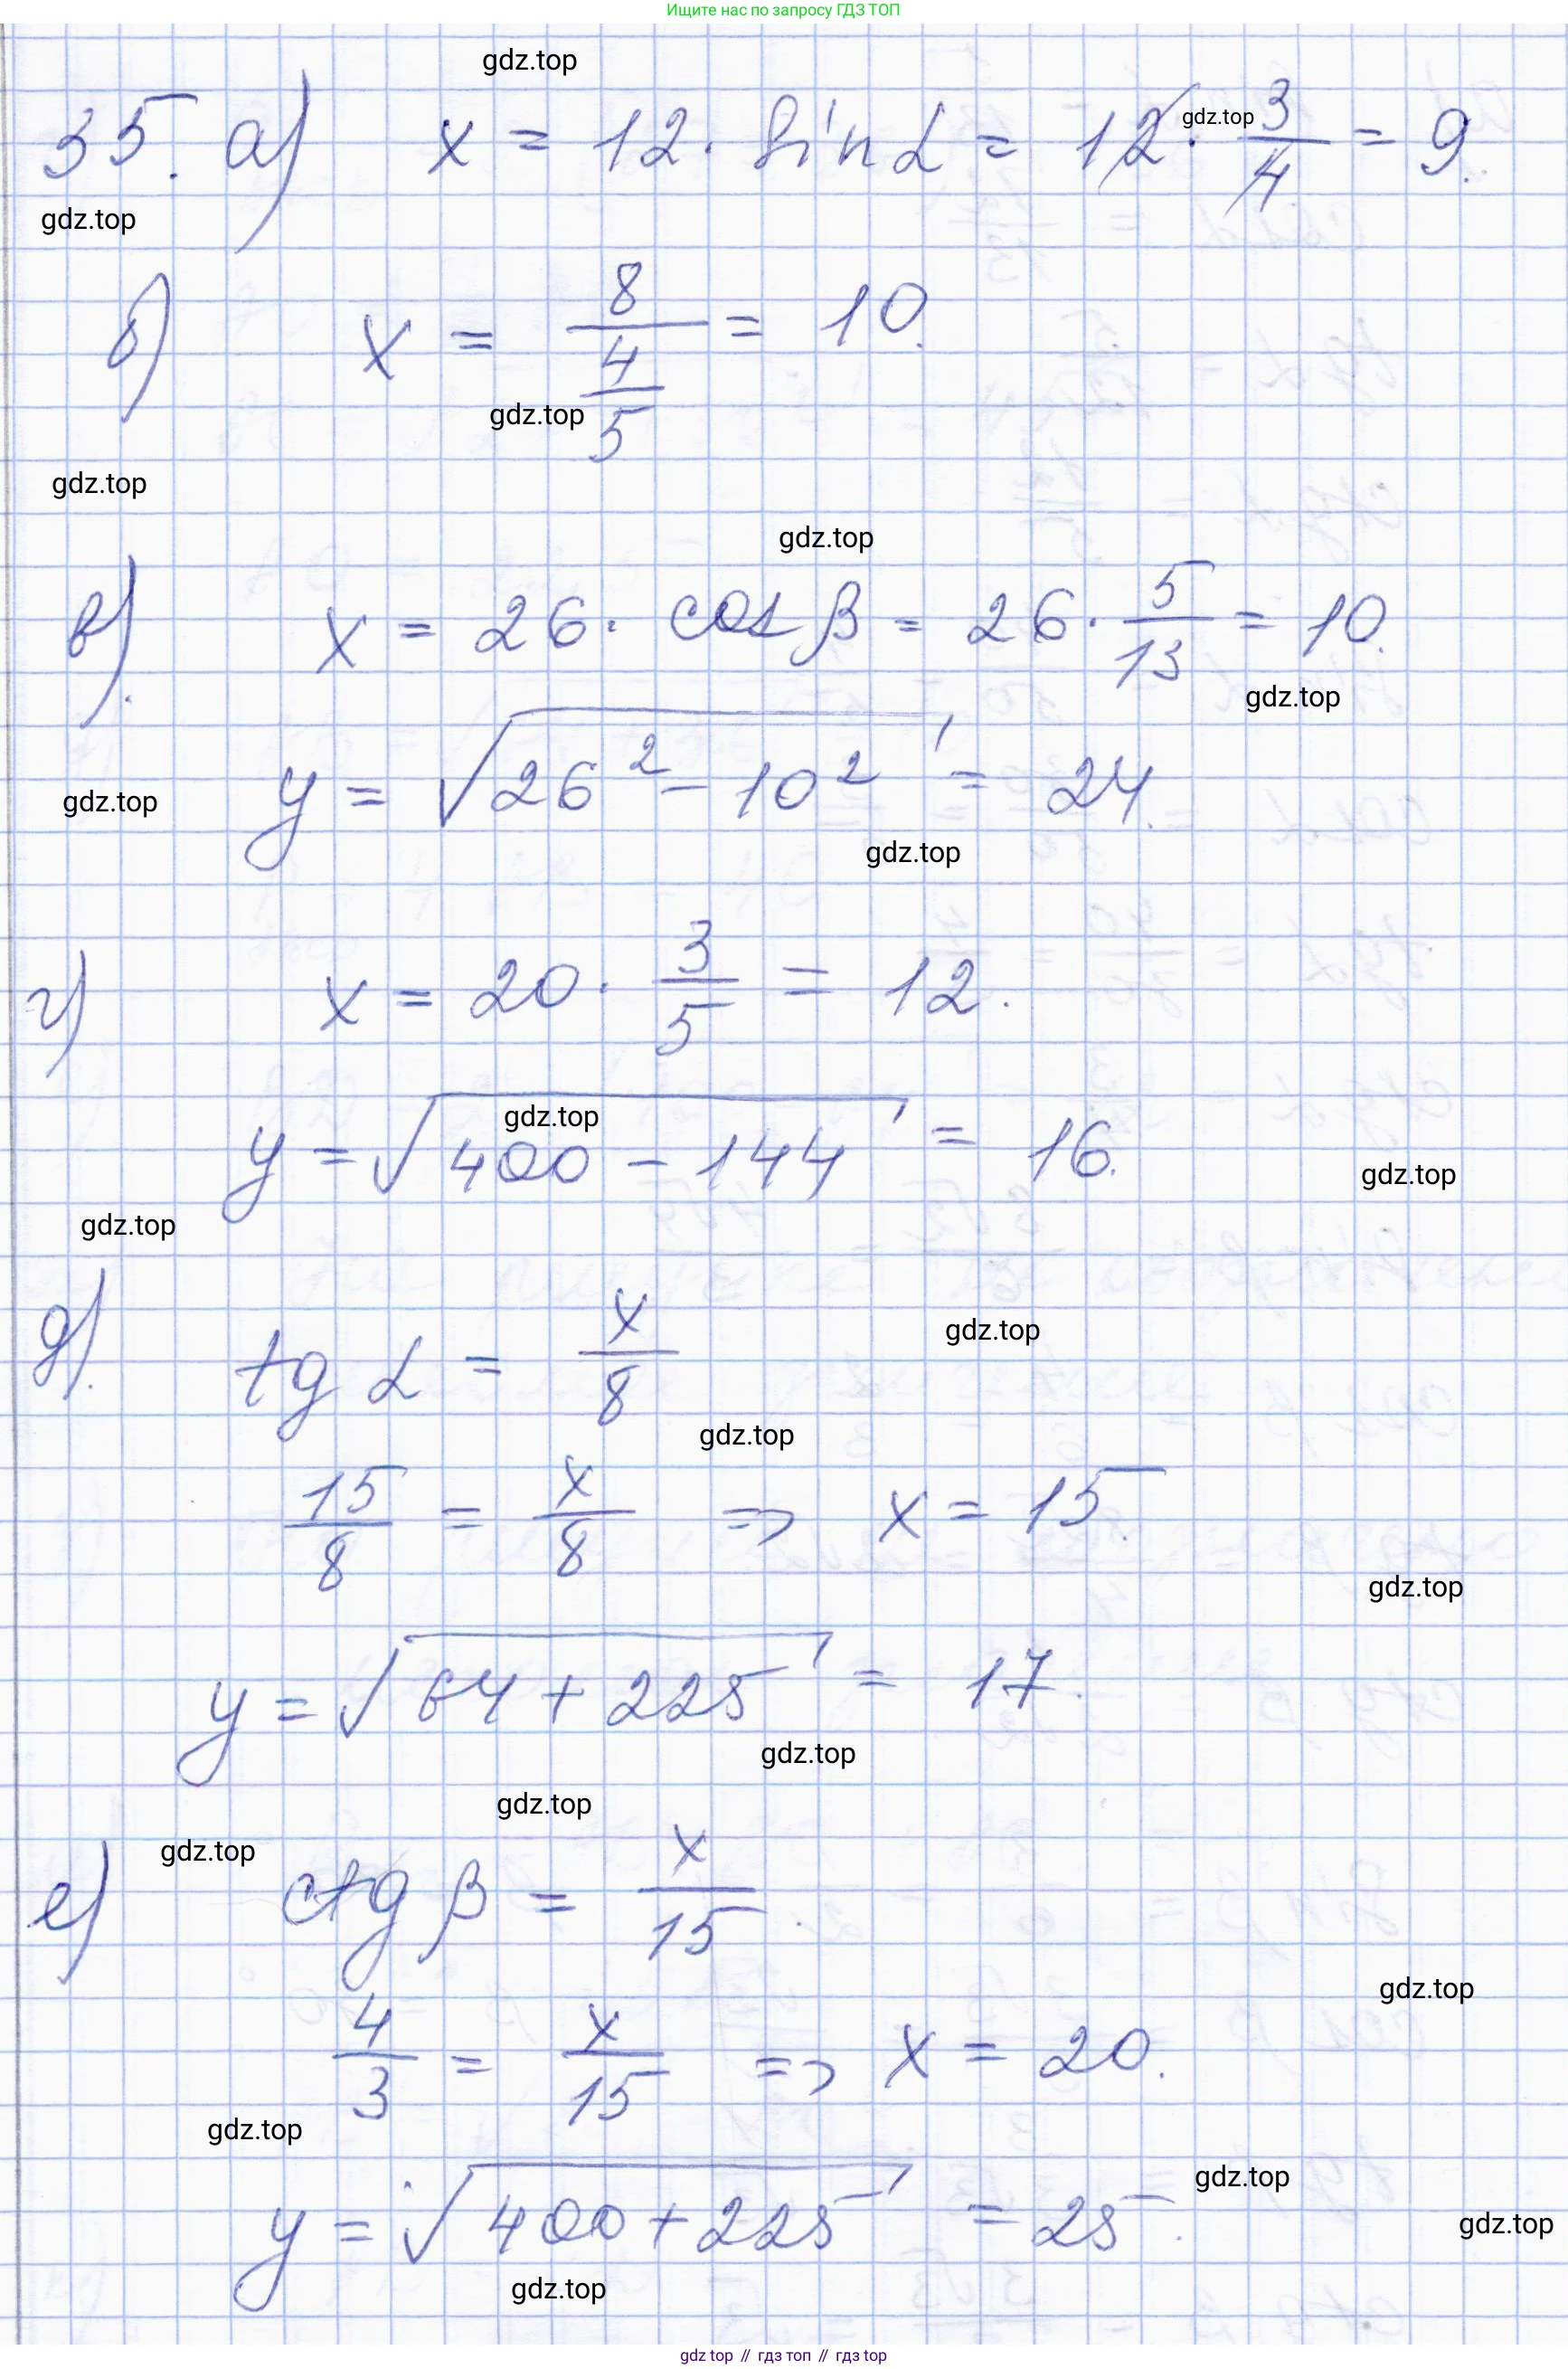 Ищите нас по запросу ГДЗ ТОП
gdz.top
35. а) x = 12 · sin α = 12 · 3/4 = 9.
gdz.top
gdz.top
б) x = 8/(4/5) = 10.
gdz.top
gdz.top
gdz.top
в). x = 26 · cos β = 26 · 5/13 = 10.
gdz.top
y = √(26² - 10²) = 24.
gdz.top
gdz.top
г) x = 20 · 3/5 = 12.
gdz.top
y = √(400 - 144) = 16.
gdz.top
gdz.top
д). tg α = x/8
gdz.top
gdz.top
15/8 = x/8 => x = 15.
gdz.top
y = √(64 + 225) = 17.
gdz.top
gdz.top
gdz.top
е) ctg β = x/15.
gdz.top
4/3 = x/15 => x = 20.
gdz.top
gdz.top
y = √(400 + 225) = 25.
gdz.top
gdz.top
gdz top // гдз топ // гдз top